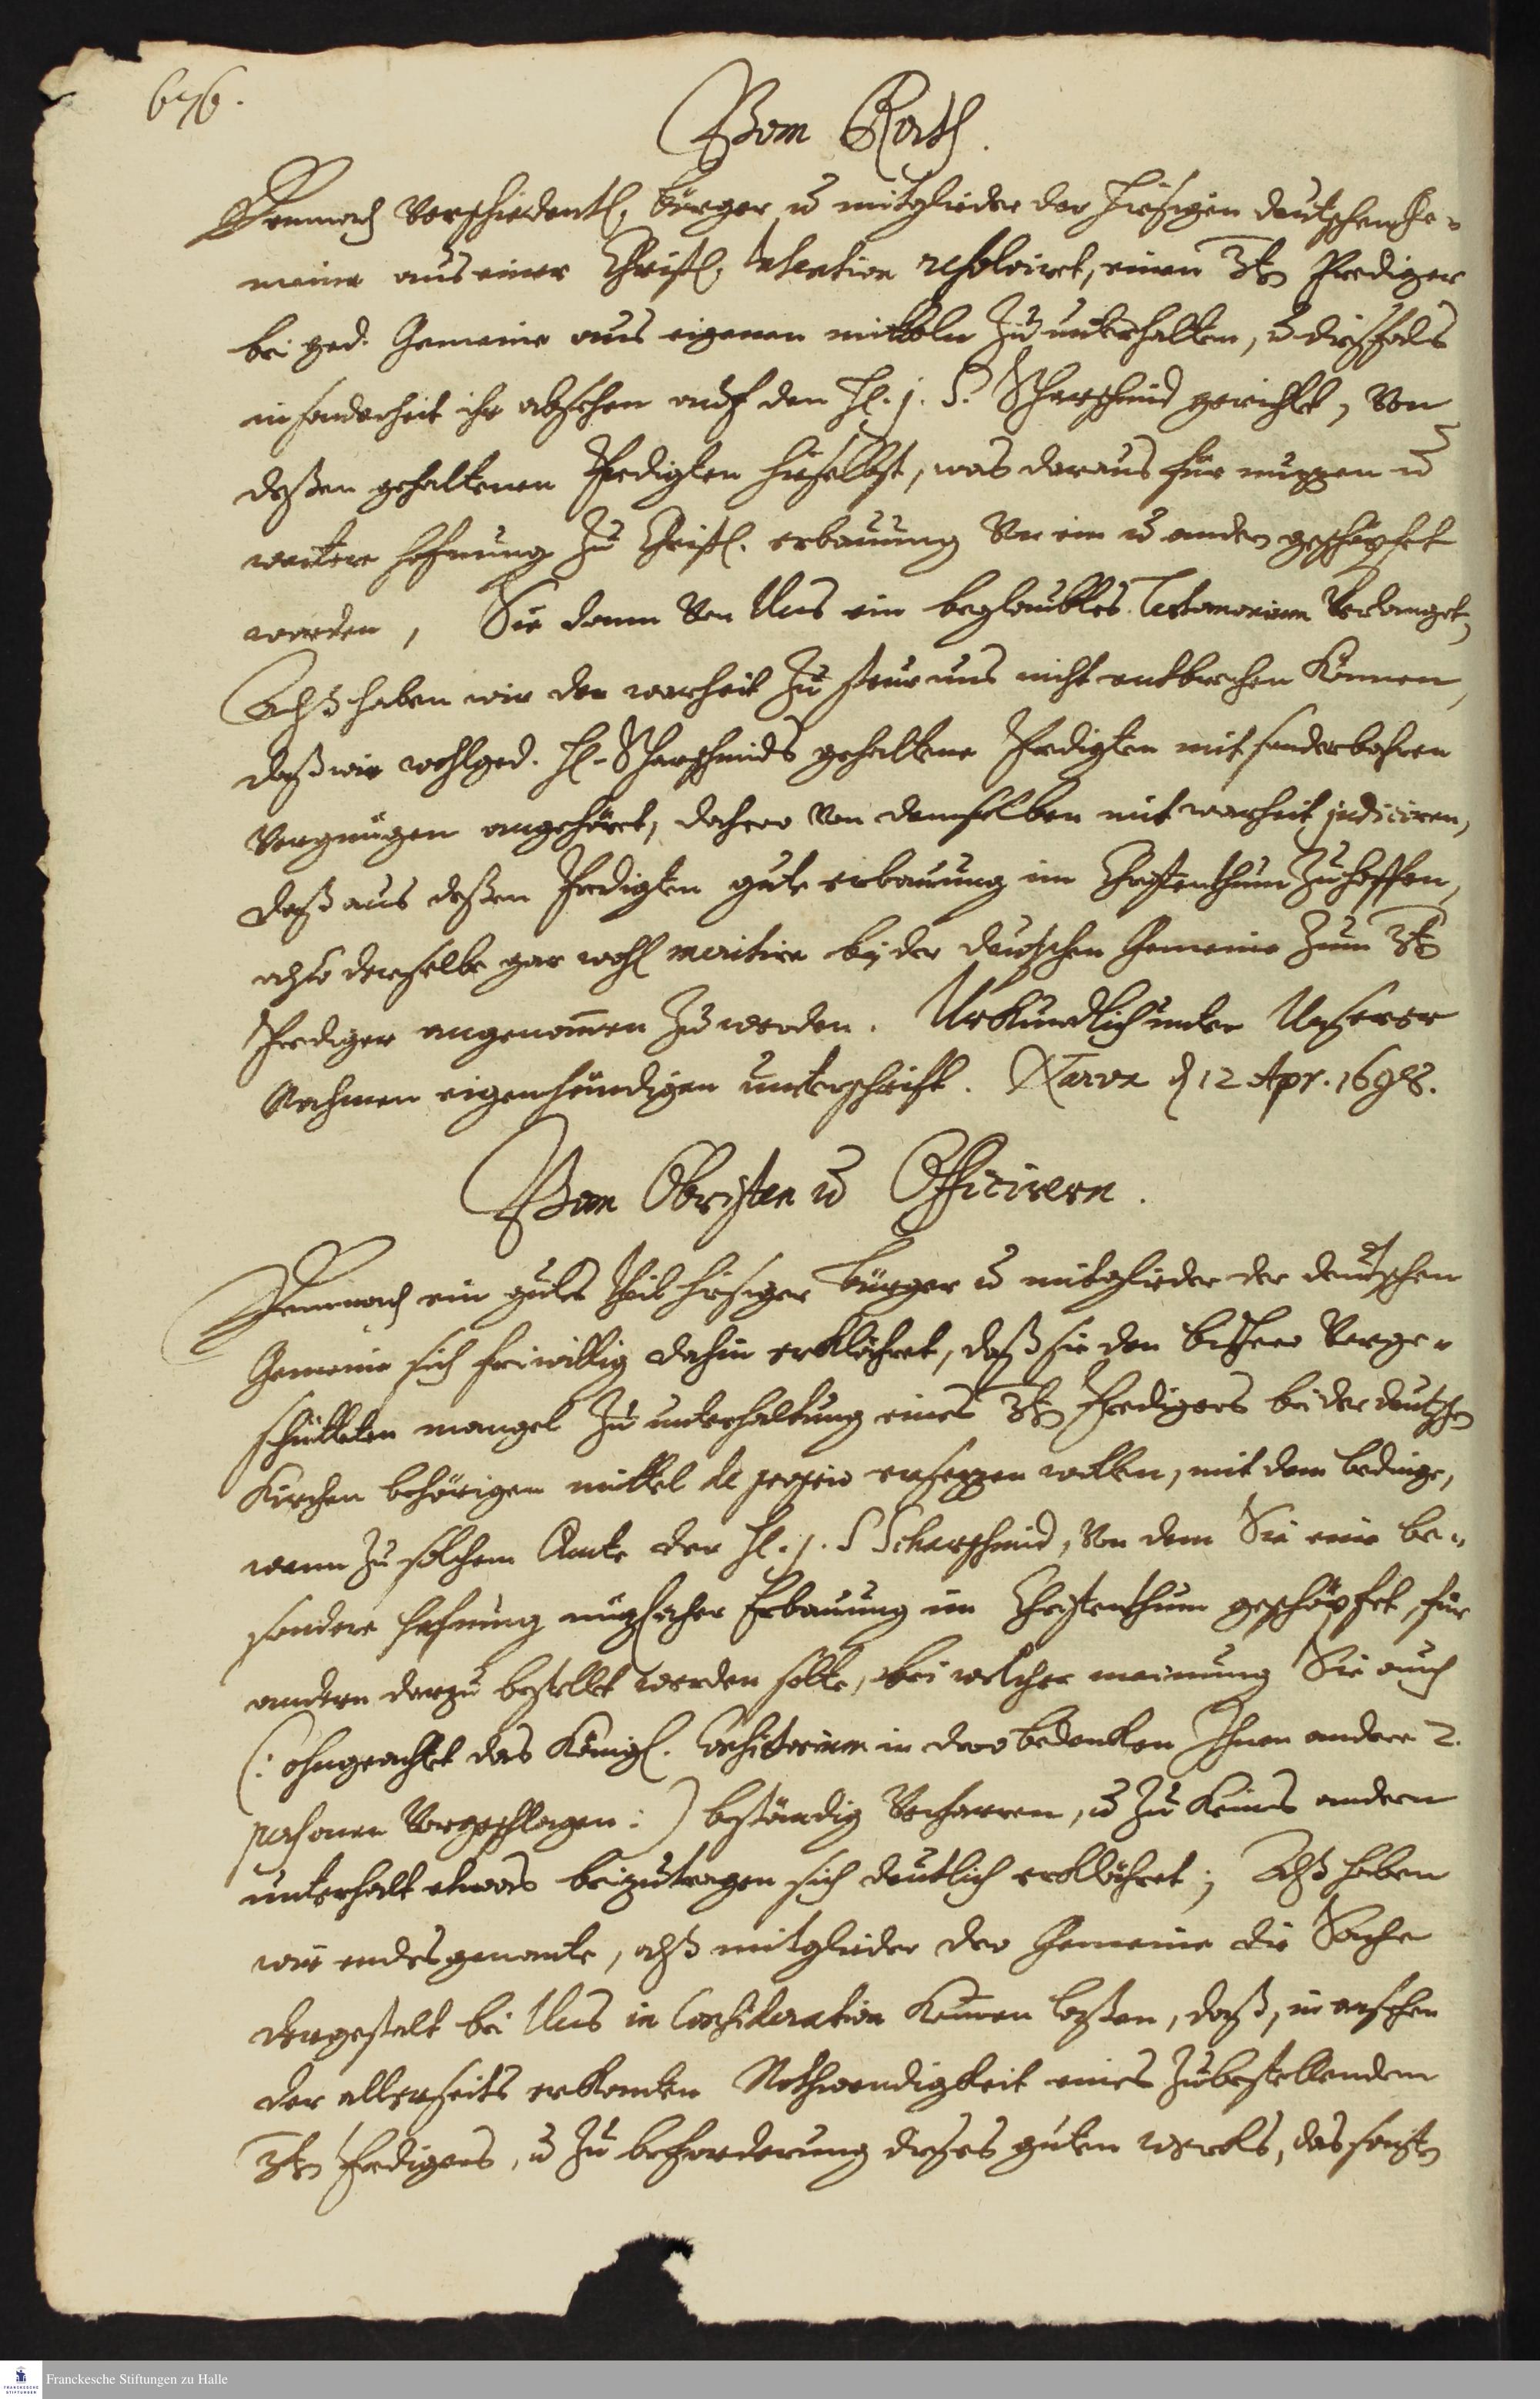 676.
Vom Rath.
Demnach verschiedentl. bürger u mitglieder der hiesigen deutschen Ge-
meine aus einer Christl. Intention resolviret, einen 3ten Prediger
bei ged. Gemeine aus eigenen mitteln zu unterhalten, u diesfals
insonderheit ihr absehen auf den H. J. S. Scharschmid gerichtet, von
deßen gehaltenen Predigten hieselbst, was daraus für nuzzen u
weitere hofnung zu Christl. erbauung von ein u andern geschöpfet
worden, Sie dann von Uns ein beglaubtes Testimonium verlanget,
Alß haben wir der warheit zu steur uns nicht entbrechen können,
daß wir wohlged. H. Scharschmids gehaltene Predigten mit sonderbahren
vergnügen angehöret, dahero von demselben mit warheit judiciren,
daß aus deßen Predigten gute erbauung im Christenthum zuhoffen,
also derselbe gar wohl meritire bey der deutschen Gemeine zum 3ten
Prediger angenommen zu werden. Urkundlich unter Unserer
Nahmen eigenhändigen unterschrift. Narva d 12 Apr. 1698.
Vom Obristen u Officirern.
Demnach ein gutes theil hiesiger bürger u mitglieder der deutschen
Gemeine sich freiwillig dahin erklähret, daß sie den bishero vorge-
schützten mangel zu unterhaltung eines 3ten Predigers bei der deutschen
Kirchen behörigen mittel de proprio ersezzen wolten, mit dem bedinge,
wenn zu solchem Amte der H. J. S Scharschmid, von dem Sie eine be-
sondere hofnung nüzlicher Erbauung im Christenthum geschöpfet, für
andern darzu bestellet werden solte, bei welcher meinung Sie auch
(: ohngeachtet das Königl. Consistorium in dero bedenken Ihnen andere 2.
personen vorgeschlagen :) beständig verharren, u zu keines andern
unterhalt etwas beizutragen sich deutlich erklähret; Alß haben
wir endes genante, alß mitglieder der Gemeine die Sache
dergestalt bei Uns in Consideration kommen laßen, daß, in ansehen
der allerseits erkanten Nothwendigkeit eines zubestellenden
3ten Predigers, u zu beförderung dieses guten wercks, das sonsten
Franckesche Stiftungen zu Halle